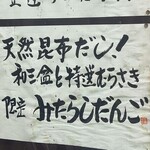 天然昆布だし!
和三盆と特選むらさき
限定 みたらしだんご